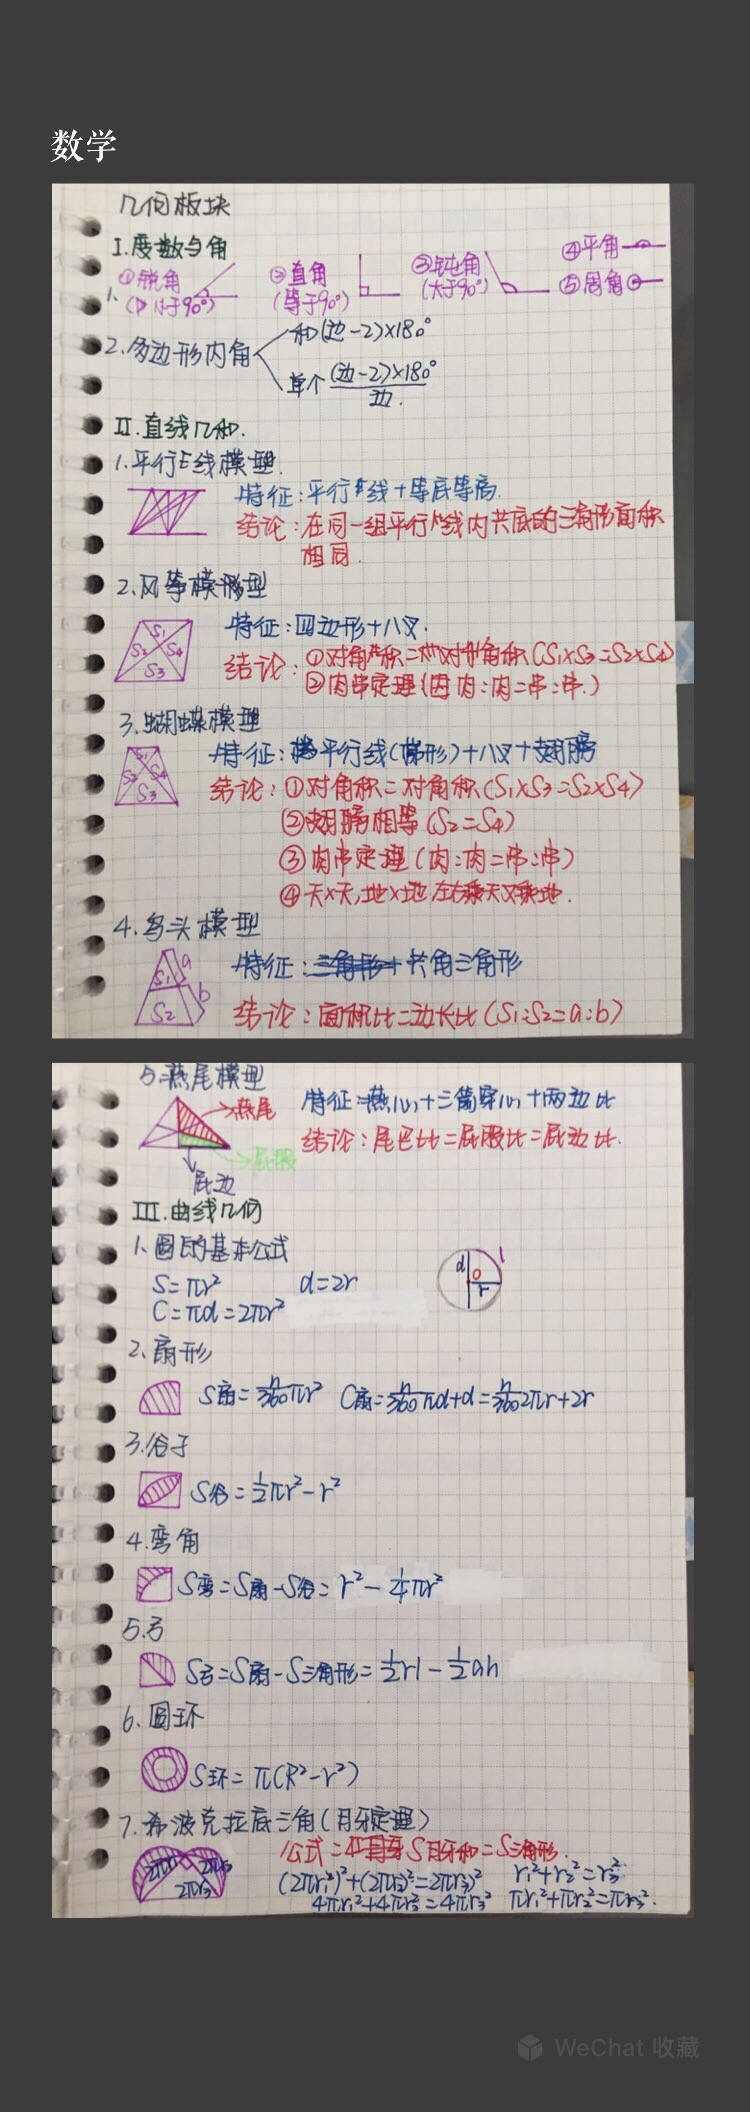 数学
几何板块
I.度数与角
1.①锐角 ②直角 ③钝角 ④平角
(小于90°) (等于90°) (大于90°) ⑤周角
2.多边形内角
和(边-2)×180°
单个(边-2)×180°/边.
II.直线几何.
1.平行线模型.
特征:平行线+等底等高.
结论:在同一组平行线内共底的三角形面积
相同.
2.风筝模型
S1 S2 S4 S3
特征:四边形+八叉.
结论:①对角积=对角积(S1×S3=S2×S4)
②肉串定理(肉:肉=串:串.)
3.蝴蝶模型
S1 S2 S4 S3
特征:平行线(梯形)+八叉+翅膀
结论:①对角积=对角积(S1×S3=S2×S4)
②翅膀相等(S2=S4)
③肉串定理(肉:肉=串:串)
④天×天,地×地,左右乘天又乘地.
4.鸟头模型
S1 a S2 b
特征:共角三角形
结论:面积比=边长比(S1:S2=a:b)
5.燕尾模型
燕尾 屁股 底边
特征:燕心+三箭穿心+两边比
结论:尾巴比=屁股比=底边比.
III.曲线几何
1.圆的基本公式
S=πr² d=2r
C=πd=2πr²
d O r l
2.扇形
S扇=n/360πr² C扇=n/360πd+d=n/3602πr+2r
3.谷子
S谷=1/2πr²-r²
4.弯角
S弯=S扇-S谷=r²-1/4πr²
5.弓
S弓=S扇-S三角形=1/2rl-1/2ah
6.圆环
S环=π(R²-r²)
7.希波克拉底三角(月牙定理)
2πr1 2πr2 2πr3
公式=S月牙和=S三角形.
(2πr1²)²+(2πr2)²=2πr3)² r1²+r2²=r3²
4πr1²+4πr2²=4πr3² πr1²+πr2²=πr3².
WeChat 收藏